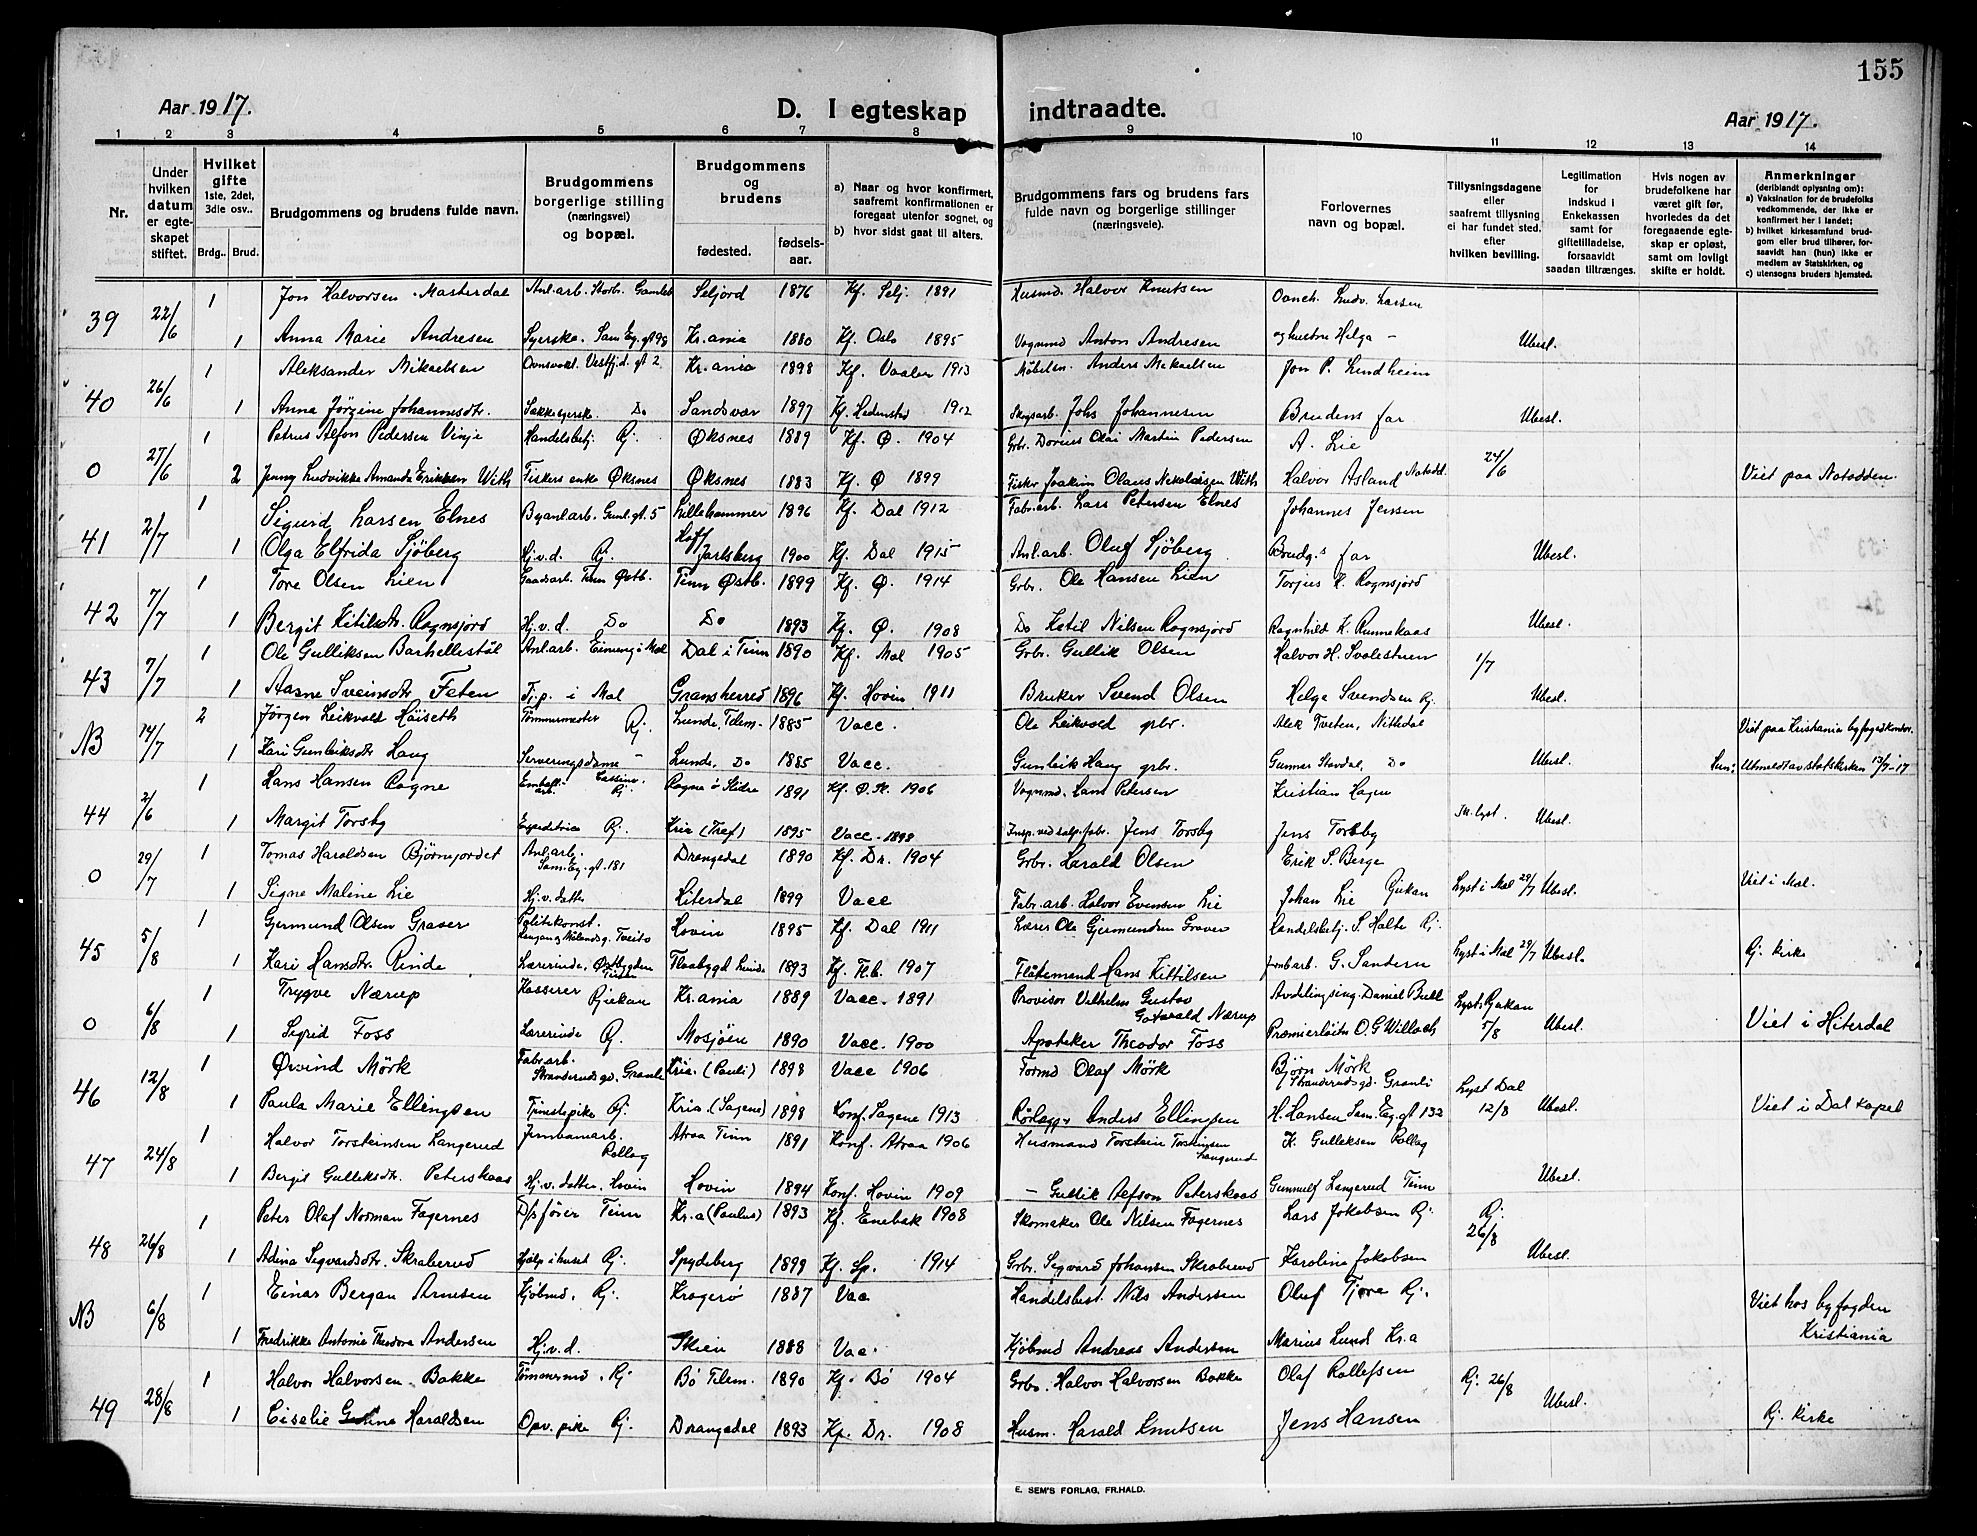 155
Aar 1917.
D. I egteskap indtraadte.
Aar 1917.
1 2 3 4 5 6 7 8 9 10 11 12 13 14
Nr.
Under hvilken datum er egteskapet stiftet.
Hvilket gifte 1ste, 2det, 3die osv..
Brdg.. Brud.
Brudgommens og brudens fulde navn.
Brudgommens borgerlige stilling (næringsvei) og bopæl.
Brudgommens og brudens
fødested.
fødsels-aar.
a) Naar og hvor konfirmert, saafremt konfirmationen er foregaat utenfor sognet, og
b) hvor sidst gaat til alters.
Brudgommens fars og brudens fars fulde navn og borgerlige stillinger (næringsveie).
Forlovernes navn og bopæl.
Tillysningsdagene eller saafremt tillysning ei har fundet sted, efter hvilken bevilling.
Legitimation for Indskud i Enkekassen samt for giftetilladelse, forsaavidt saadan tiltrænges.
Hvis nogen av brudefolkene har været gift før, hvorledes da det foregaaende egteskap er opløst, samt om lovligt skifte er holdt.
Anmerkninger (deriblandt oplysning om):
a) Vaksination for de brudefolks vedkommende, der ikke er konfirmert her i landet;
b) hvilket kirkesamfund brudgom eller brud tilhører, forsaavidt han (hun) ikke er medlem av Statskirken, og
c) utensogns bruders hjemsted.
39 22/6 1 Jon Halvorsen Masterdal Anl.arb. Storb. Gamleb Seljord 1876 Kf. Selj. 1891 Husmd. Halvor Knutsen Ludv. Larsen
1 Anna Marie Andresen Syerske. Sam Eg. gt 98 Kr.ania 1880 Kf. Oslo 1895 Vognmd Anton Andresen og hustru Helga - Ubesl.
40 26/6 1 Aleksander Mikaelsen Ovnsvakt. Vestfj.d. gt 2 Kr.ania 1898 Kf. Vaaler 1913 Møbelsn. Anders Mikaelsen Jon P. Lundheim
1 Anna Jørgine Johannesdtr. Sækkesyerske Do Sandsvær 1897 Kf. Hedenstad 1912 Skogsarb. Johs Johannesen Brudens far Ubesl.
0 27/6 1 Petrus Alfon Pedersen Vinje Handelsbetj. Rj. Øksnes 1889 Kf. Ø. 1904 Grbr. Dorius Olai Martin Pedersen A. Lie
2 Jenny Ludvikke Amanda Eriksen With Fiskers enke Øksnes Øksnes 1883 Kf. Ø 1899 Fisker Joakim Olaus Nikolaisen With Halvor Asland Notodd. 24/6 Viet paa Notodden.
41 2/7 1 Sigurd Larsen Elnes Byanl.arb. Gunl. gt. 5 Lillehammer 1896 Kf. Dal 1912 Fabr.arb. Lars Petersen Elnes Johannes Jenssen
1 Olga Elfrida Sjöberg Hj.v.d. Rj. Hoff Jarlsberg 1900 Kf. Dal 1915 Anl.arb. Oluf Sjöberg Brudg.s far Ubesl.
42 7/7 1 Tore Olsen Lien Gaardsarb. Tinn Østb. Tinn Østb. 1899 Kf. Ø. 1914 Grbr. Ole Hansen Lien Torjus K. Rognsjord
1 Bergit Kitilsdtr. Rognsjord Hj.v.d. Do Do 1893 Kf. Ø. 1908 Do Ketil Nilsen Rognsjord Ragnhild K. Runnekaas Ubesl.
43 7/7 1 Ole Gulliksen Barhellestöl Anl.arb. Einung i Mæl Dal i Tinn 1890 Kf. Mæl 1905 Grbr. Gullik Olsen Halvor H. Svolestuen 1/7
1 Aasne Sveinsdtr. Feten Tj.p. i Mæl Gransherred 1896 Kf. Hovin 1911 Bruker Svend Olsen Helga Svendsen Rj. Ubesl.
NB 14/7 2 Jørgen Leikvold Høiseth Tömmermester Rj. Lunde, Telem. 1885 Vacc. Ole Leikvold grbr. Alek Tveten, Nittedal Viet paa Kristiania byfogedkontor.
1 Kari Gunleiksdtr Haug Serveringsdame - Lunde, Do 1885 Vacc. Gunleik Haug grbr. Gunnar Stordal, Do Ubesl. Hun: Utmeldt av statskirken 13/7-17
44 2/6 1 Hans Hansen Rogne Emball. arb. Rj. Rogne Ø Slidre 1891 Kf. Ø. Sl. 1906 Vognmd. Hans Petersen Kristian Hagen
1 Margit Torsby Expeditrice Rj. Kria (Tref) 1895 Vacc. 1898 Insp. ved salp.fabr. Jens Torsby Jens Torsby Ubesl.
0 29/7 1 Tomas Haraldsen Björnjordet Anl.arb. Sam.Eg. gt. 181 Drangedal 1890 Kf. Dr. 1904 Grbr. Harald Olsen Erik S. Berge
1 Signe Maline Lie Hj.v. datter Hiterdal 1899 Vacc Fabr. arb. Halvor Evensen Lie Johan Lie Rjukan Lyst i Mæl 29/7 Ubesl. Viet i Mæl.
45 5/8 1 Gjermund Olsen Graver Politikonst. Tveito Hovin 1895 Kf. Dal 1911 Lærer Ole Gjermundsen Graver Handelsbetj. S. Holte Rj.
1 Kari Hansdtr. Rinde Lærerinde, Østbygden Tinn Flaabygd Lunde 1893 Kf. Flb. 1907 Flötemand Hans Kittilsen Jernb.arb. G. Sandern Lyst i Mæl 29/7 Ubesl. Rj. kirke
0 6/8 1 Trygve Nærup Kasserer Rjukan Kr.ania 1889 Vacc. 1891 Provisor Vilhelm Gustav Nærup Avdelingsing. Daniel Bull Lyst i Rjukan
1 Sigrid Foss Lærerinde Rj. Mosjöen 1890 Vacc. 1900 Apoteker Theodor Foss Premierlöitn O. G Willoch 5/8 Ubesl. Viet i Hiterdal
46 12/8 1 Øivind Mörk Fabr.arb. Stranderudsgd. Granli Kria. (Pauli) 1898 Vacc 1906 Formd Olaf Mörk Björn Mörk Stranderudsgd. Granli Lyst Dal
1 Paula Marie Ellingsen Tjenestepike Rj. Kria. (Sagene) 1898 Konf. Sagene 1913 Rörlægger Anders Ellingsen H. Hansen Sam. Eg. gt 132 12/8 Ubesl. Viet i Dal kapel
47 24/8 1 Halvor Torsteinsen Langerud Jernbanearb. Rollag Atraa Tinn 1891 Konf. Atraa 1906 Husmand Torstein Torsteinsen Langerud K. Gulleksen Rollag
1 Bergit Gulleksdtr. Peterskaas Hj.v. datter. Hovin Hovin 1894 Konf. Hovin 1909 - Gullik Aslfson Peterskaas Gunnulf Langerud Tinn Ubesl.
48 26/8 1 Peter Olaf Norman Fagernes D/s förer Tinn Kr.a (Paulus) 1893 Kf. Enebak 1908 Skomaker Ole Nilsen Fagernes Lars Jokobsen Rj. Rj.
1 Adina Sigvardsdtr. Skraberud Hjælp i huset Rj. Spydeberg 1899 Kf. Sp. 1914 Grbr. Sigvard Johansen Skraberud Karoline Jakobsen 26/8 Ubesl.
NB 6/8 1 Einar Bergan Arnesen Kjöbmd. Rj. Kragerø 1887 Vac Handelsbest. Nils Andersen Oluf Tjøre Rj. Viet hos byfogden Kristiania
1 Fredrikke Antonie Theodora Andersen Hj.v.d. Skien 1888 Vac. Kjöbmd Andreas Andersen Marius Lund Kr.a
49 28/8 1 Halvor Halvorsen Bakke Tömmermd. Rj. Bø Telem. 1890 Kf. Bø 1904 Grbr. Halvor Halvorsen Bakke Olaf Rollefsen Rj. 26/8
1 Haraldsen Opv. pike Rj. Drangedal 1893 Kf. Dr. 1908 Husm. Harald Knutsen Jens Hansen Ubesl. Rj. kirke
E. SEM'S FORLAG, FR.HALD.